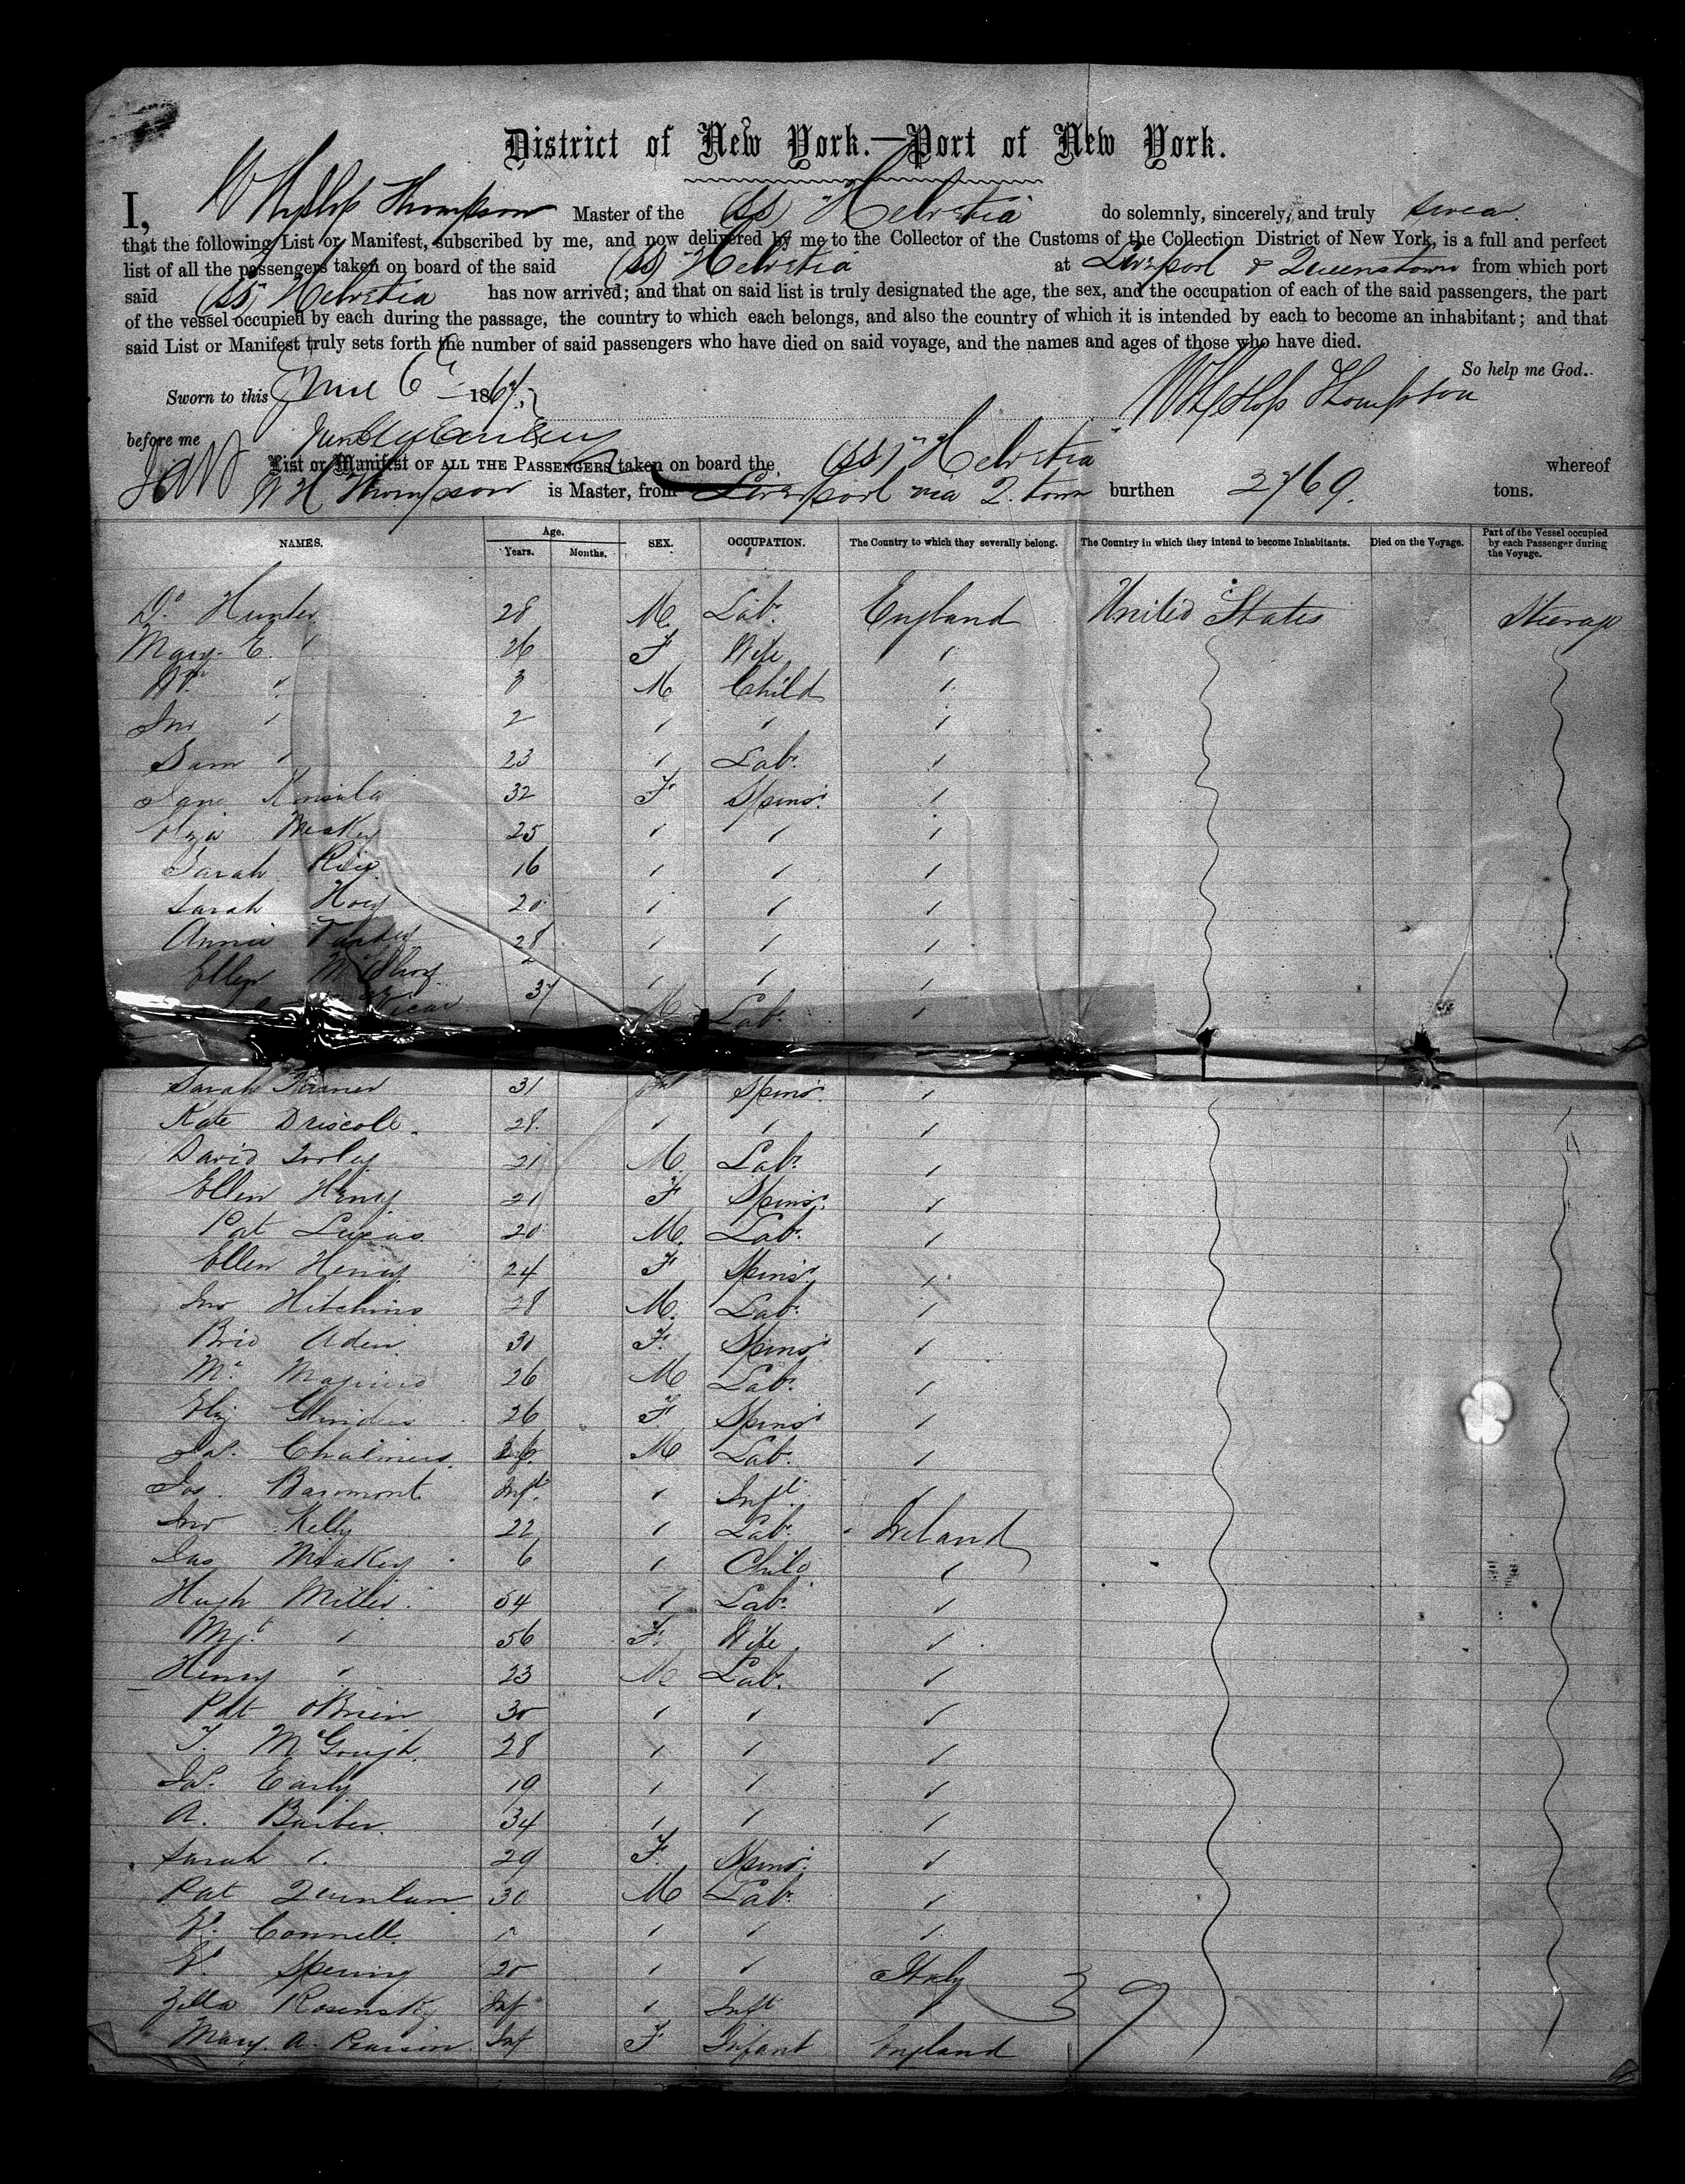 District of New York.—Port of New York.
I, Thompson Master of the (SS) "Helvetia" do solemnly, sincerely, and truly swear
that the following List or Manifest, subscribed by me, and now delivered by me to the Collector of the Customs of the Collection District of New York, is a full and perfect
list of all the passengers taken on board of the said (SS) "Helvetia at Liverpool & Queenstown from which port
said (SS) Helvetia has now arrived; and that on said list is truly designated the age, the sex, and the occupation of each of the said passengers, the part
of the vessel occupied by each during the passage, the country to which each belongs, and also the country of which it is intended by each to become an inhabitant; and that
said List or Manifest truly sets forth the number of said passengers who have died on said voyage, and the names and ages of those who have died.
So help me God.
Sworn to this June 6th 186 Thompson
before me
List or Manifest OF ALL THE PASSENGERS taken on board the (SS) "Helvetia" whereof
W H Thompson is Master, from Liverpool via Q. town burthen 2769. tons.
NAMES. Age. Years. Months. SEX. OCCUPATION. The Country to which they severally belong. The Country in which they intend to become Inhabitants. Died on the Voyage. Part of the Vessel occupied by each Passenger during the Voyage.
Do. Hunter 28 M. Labr. England United States Steerage
Mary E. " 26 F Wife "
Wm " 3 M Child "
Jno " 2 " " "
Sam " 23 " Labr. "
Jane Kinsela 32 F Spinsr. "
Eliza 25 " " "
Sarah 16 " " "
Sarah Hoey 20 " " "
Annie 28 " " "
Ellen " " "
37 M Labr. "
Sarah 31 Spinsr. "
Kate Driscoll. 28 " " "
David 21 M. Labr. "
Ellen Henry 21 F Spinsr. "
Pat Lucas 20 M. Labr. "
Ellen Henry 24 F Spinsr. "
Jno Hitchins 28 M. Labr. "
Brid Aden 30 F. Spinsr "
26 M Labr. "
Eliz 26 F. Spinsr "
Jas. Chalmers. M Labr. "
Jos. Infт. " Inft. "
Jno Kelly 22 " Labr. Ireland
Jas 6 " Child "
Hugh Miller. 54 " Labr. "
Mgt. " 56 F. Wife "
Henry " 23 M Labr. "
Pat O'Brien 30 " " "
T. McGough. 28 " " "
Jas. Early 19 " " "
A. Barber. 34 " " "
Sarah " 29 F. Spinsr. "
Pat Quinlan 30 M Labr. "
Connell. " " " "
Spering 20 " " Italy
Zella Rosensky Inf " Inft "
Mary. A. Pearson. Inf F Infant England
39